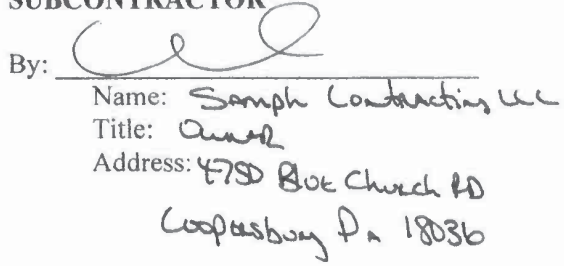 SUBCONTRACTOR
By:
Name: Semph Contracting LLC
Title: Owner
Address: 4750 Blue Church RD
Coopersburg Pa 18036